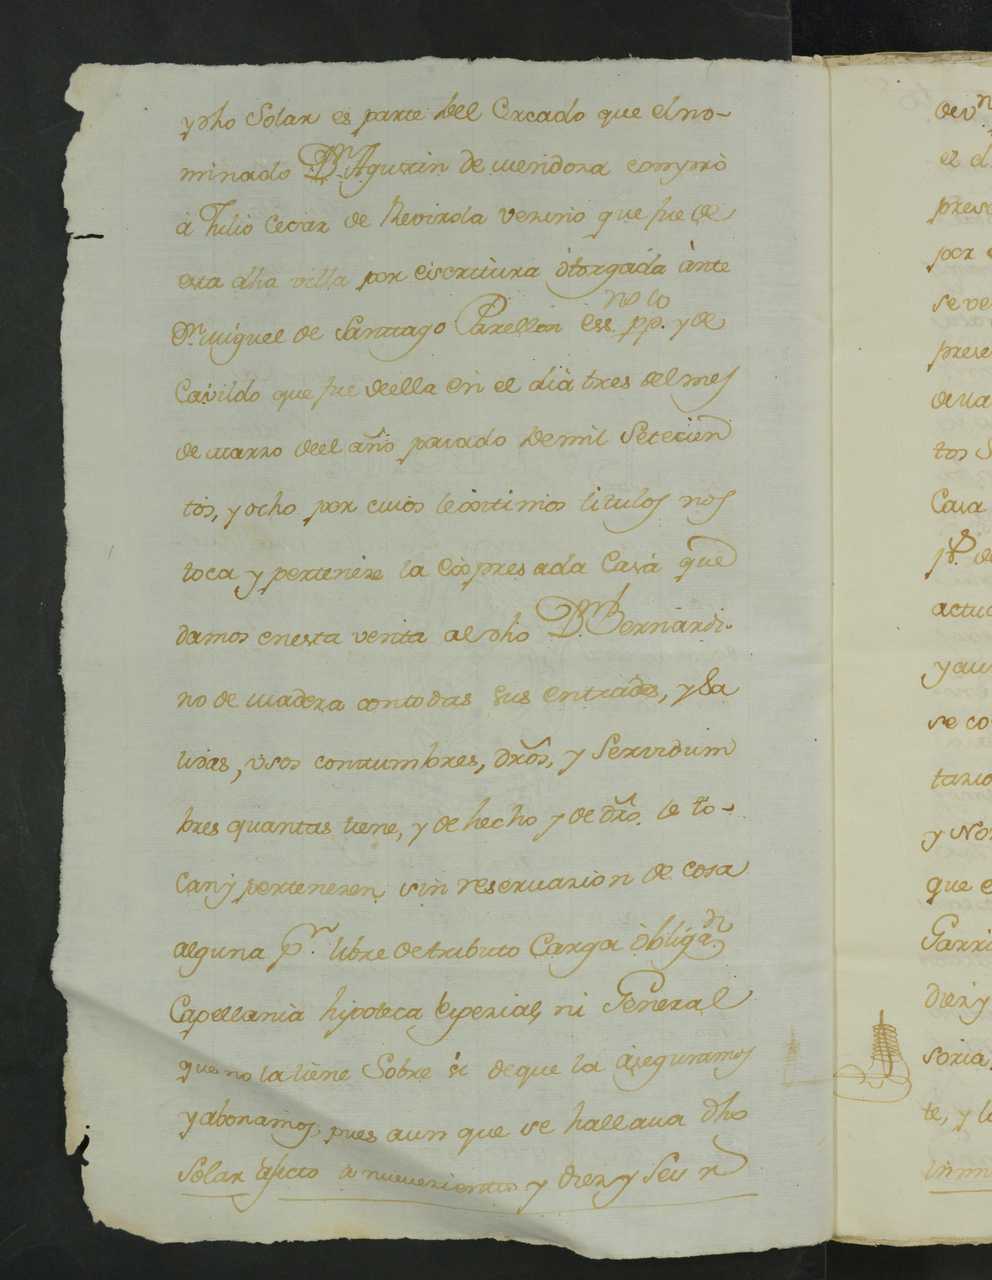 ydho Solar es parte del Cercado que elno-
minado Dn. Agustin de mendoza compró
á Julio Cesar de Revirola vezino que fue de
esta dha villa por escritura òtorgada ànte
Dn. miguel de Santiago Parellon essno. ppco. y de
Cavildo que fue deella en el dià tres del mes
de marzo deel año pasado demil Setecien
tos, y ocho por cuios lexitimos titulos nos
toca y pertenéze la expresada Casa que
damos enesta venta al dho Dn. Bernardi-
no de madera contodas sus entradas, y Sa
lidas, vsos constumbres, dros, y Servidum
bres quantas tiene, y de hecho y de dro. le to-
can y pertenezen sin reseruazion de cosa
alguna pr. libre detributo Carga òbligaon
Capellania hipoteca espezial, ni General
que no latiene Sobre si deque la aseguramos
y abonamos pues aun que se hallaua dho
Solar afecto a nuevezientos y diez y seis rs
devn
el d
prese
por
se ve
prese
tos S
Casa
pp. de
actua
yaun
se co
tario
y No
que e
Garri
diez y
soria,
te, y l